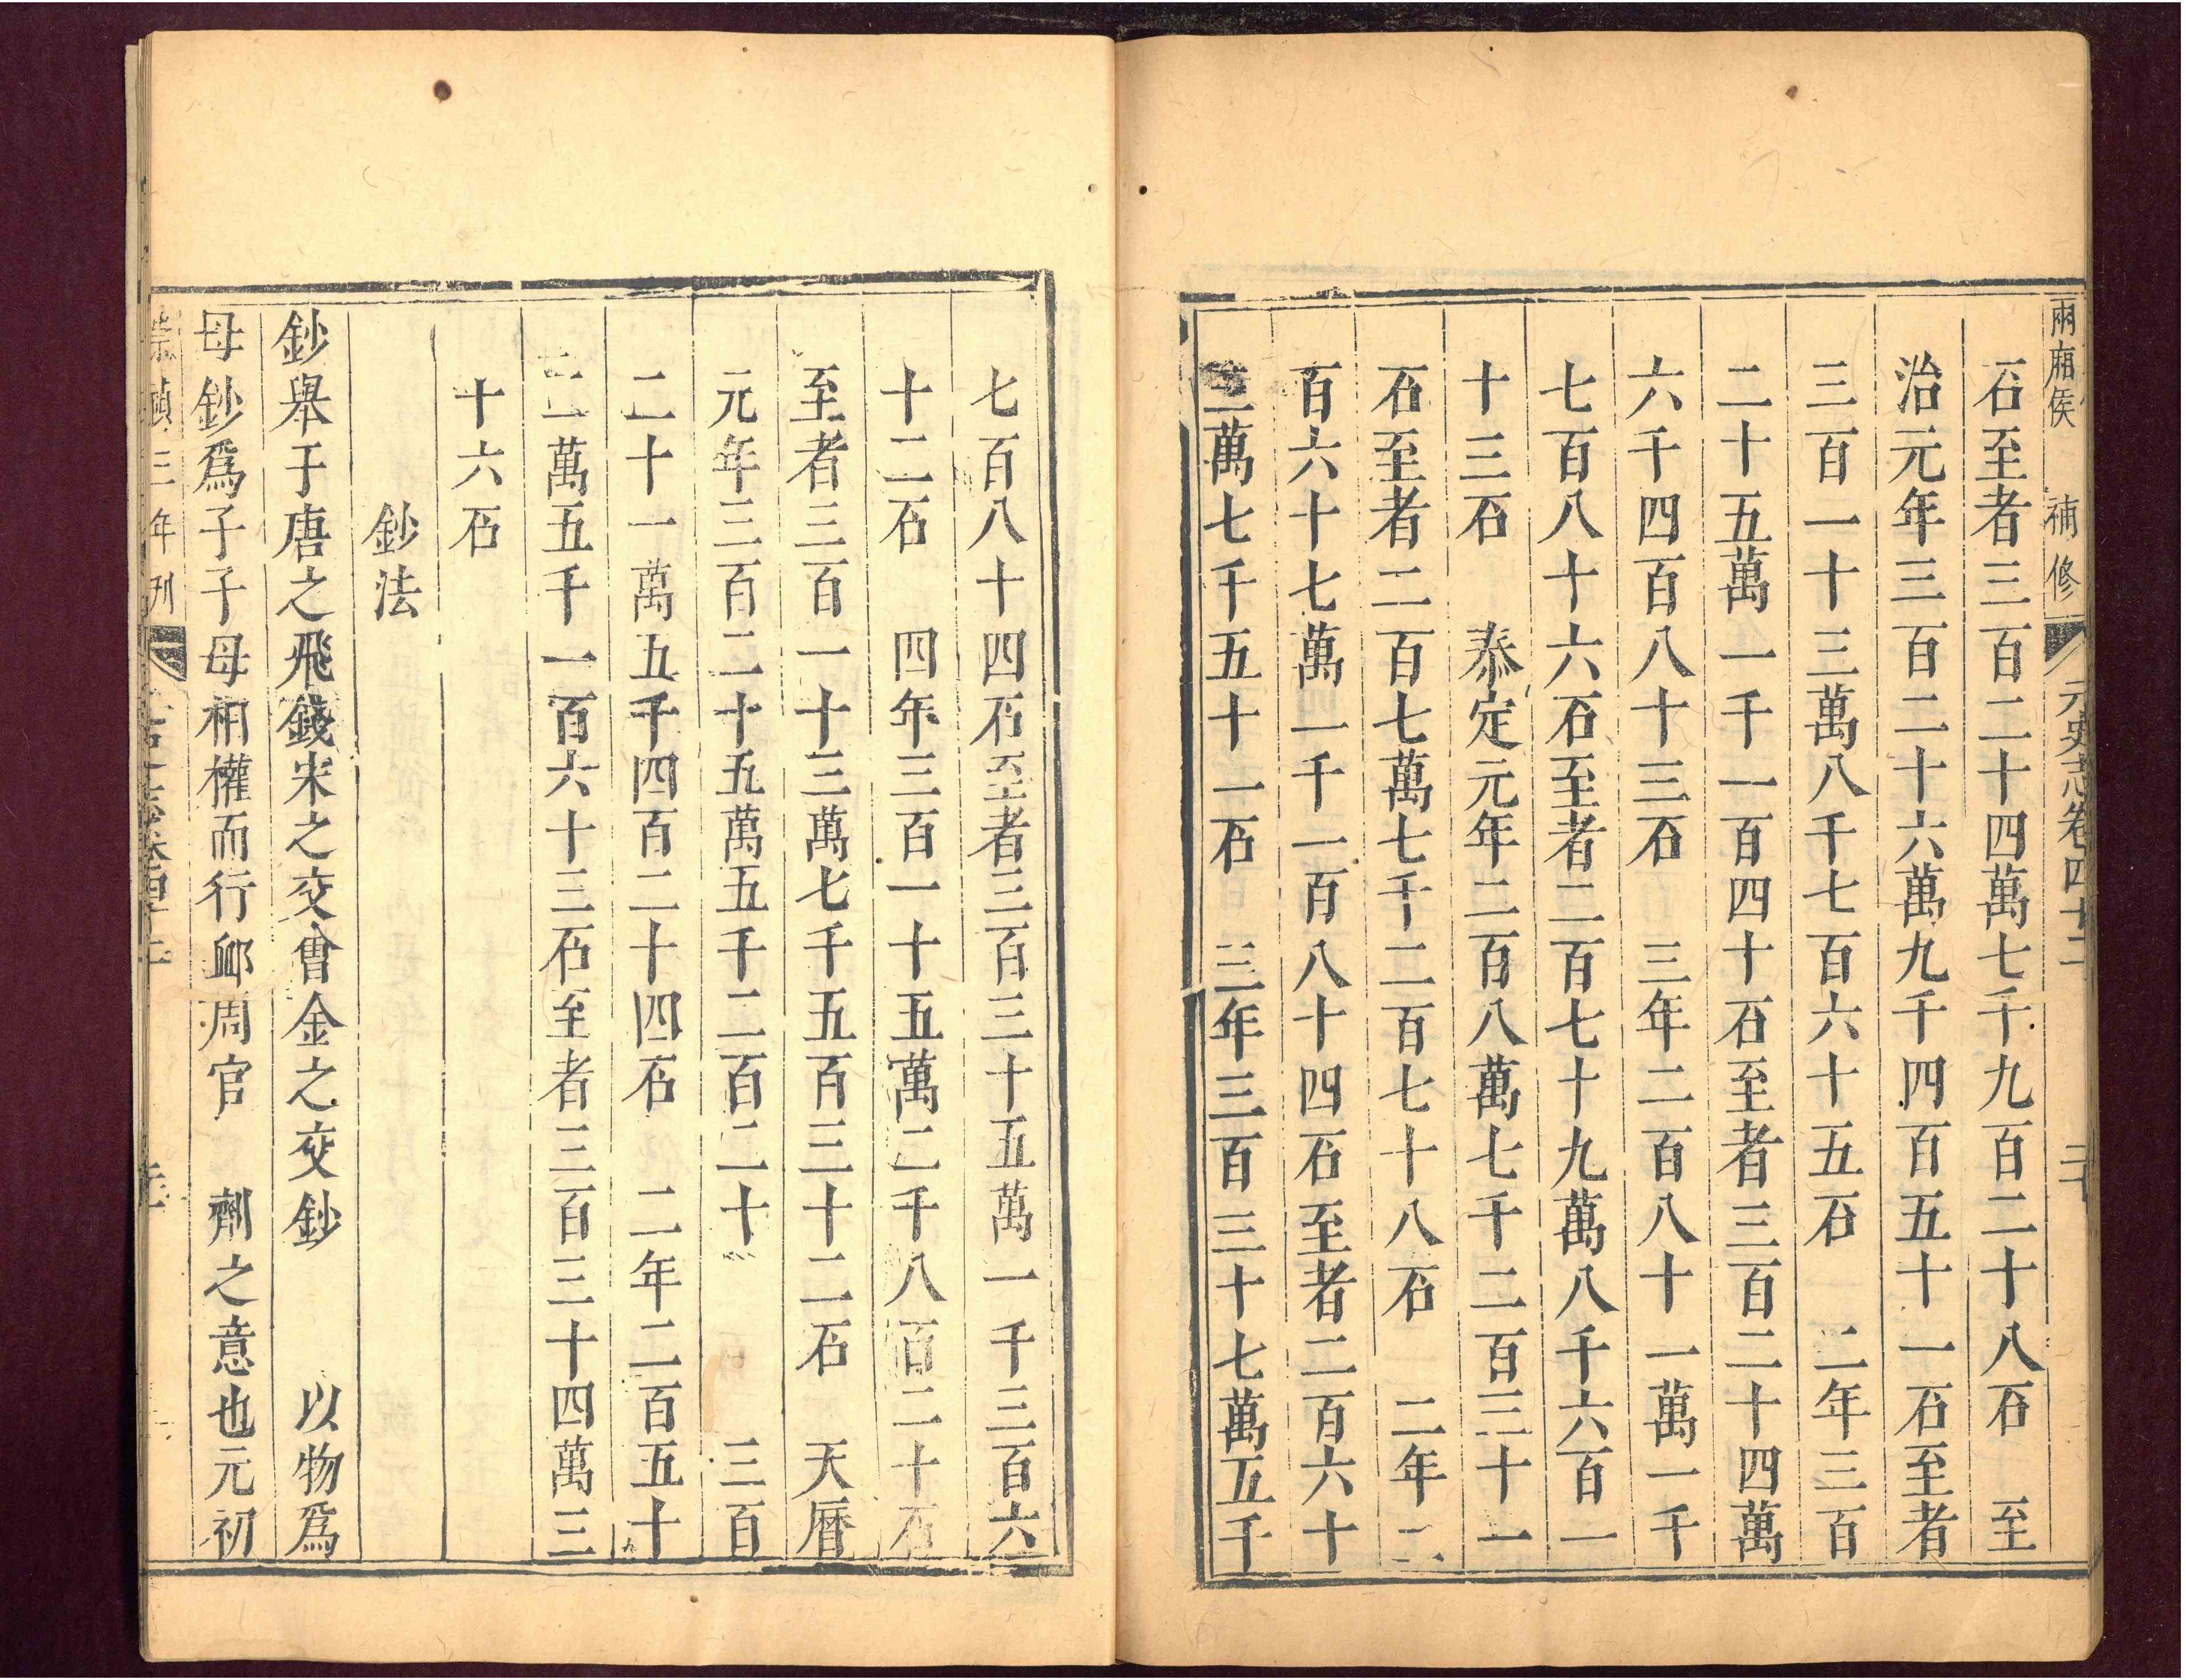 兩廂侯 補修 元史志卷四十二 三十
石至者三百二十四萬七千九百二十八石 至
治元年三百二十六萬九千四百五十一石至者
三百一十三萬八千七百六十五石 二年三百
二十五萬一千一百四十石至者三百二十四萬
六千四百八十三石 三年二百八十一萬一千
七百八十六石至者二百七十九萬八千六百一
十三石 泰定元年二百八萬七千二百三十一
石至者二百七萬七千二百七十八石 二年二
百六十七萬一千一百八十四石至者二百六十
三萬七千五十一石 三年三百三十七萬五千
七百八十四石至者三百三十五萬一千三百六
十二石 四年三百一十五萬二千八百二十石
至者三百一十三萬七千五百三十二石 天曆
元年三百二十五萬五千二百二十 三百
二十一萬五千四百二十四石 二年二百五十
二萬五千一百六十三石至者三百三十四萬三
十六石
鈔法
鈔舉于唐之飛錢宋之交會金之交鈔 以物爲
母鈔爲子子母相權而行卽周官 劑之意也元初
崇禎三年刊